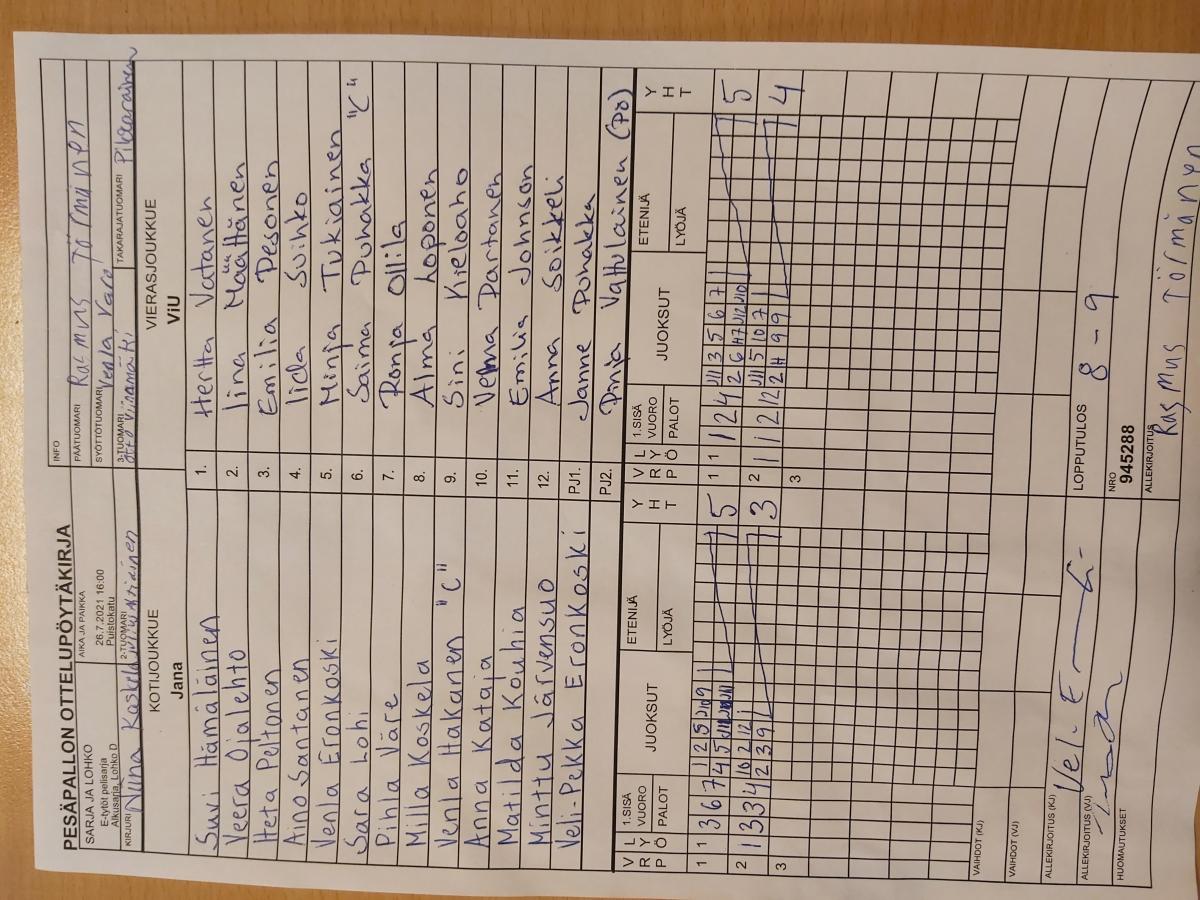 PESÄPALLON OTTELUPÖYTÄKIRJA
INFO
SARJA JA LOHKO
E-tytöt pelisarja
Alkusarja, Lohko D
AIKA JA PAIKKA
26.7.2021 16:00
Puistokatu
PÄÄTUOMARI Rasmus Törmänen
SYÖTTÖTUOMARI Venla Karo
KIRJURI Niina
2-TUOMARI
3-TUOMARI Otto
TAKARAJATUOMARI Pikarainen
KOTIJOUKKUE
Jana
VIERASJOUKKUE
ViU
Suvi Hämäläinen 1. Hertta Vatanen
Veera Ojalehto 2. Iina Määttänen
Heta Peltonen 3. Emilia Pesonen
Aino Santanen 4. Iida Suihko
Venla Eronkoski 5. Minja Tukiainen
Sara Lohi 6. Saima Puhakka "C"
Pihla Väre 7. Ronja Ollila
Milla Koskela 8. Alma Loponen
Venla Hakanen "C" 9. Sini Kieloaho
Anna Kataja 10. Partanen
Matilda Kouhia 11. Emilia Johnson
Minttu Järvensuo 12. Anna Soikkeli
Veli-Pekka Eronkoski PJ1. Janne Puhakka
PJ2. Pinja Vattulainen (PÖ)
V R L Y P Ö 1.SISÄ VUORO PALOT JUOKSUT ETENIJÄ LYÖJÄ Y H T
V R L Y P Ö 1.SISÄ VUORO PALOT JUOKSUT ETENIJÄ LYÖJÄ Y H T
1 1 3 6 7 1 2 5 9 5
4 5
2 1 3 3 4 10 2 12 3
2 3 9
3
1 1 1 2 4 3 5 6 7 5
2 6
2 1 1 2 12 5 10 7 4
2 9 9
3
VAIHDOT (KJ)
VAIHDOT (VJ)
ALLEKIRJOITUS (KJ)
ALLEKIRJOITUS (VJ)
HUOMAUTUKSET
LOPPUTULOS 8 - 9
NRO
945288
ALLEKIRJOITUS
Rasmus Törmänen